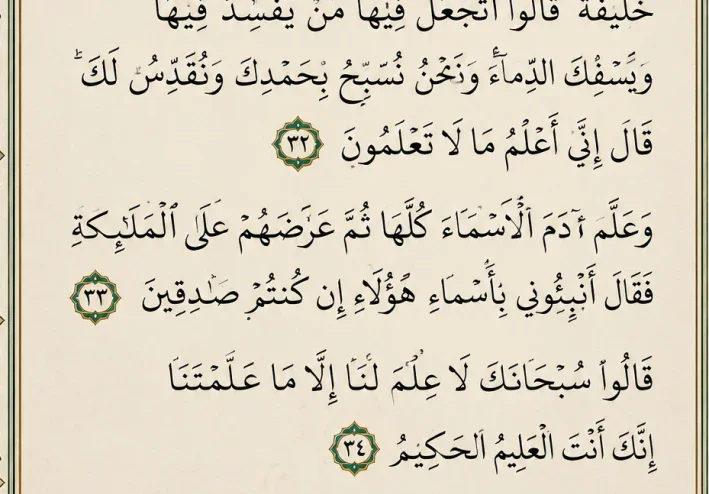 خَلِيفَةً قَالُوا أَتَجْعَلُ فِيهَا مَنْ يُفْسِدُ فِيهَا
وَيَسْفِكُ الدِّمَاءَ وَنَحْنُ نُسَبِّحُ بِحَمْدِكَ وَنُقَدِّسُ لَكَ
قَالَ إِنِّي أَعْلَمُ مَا لَا تَعْلَمُونَ ٣٢
وَعَلَّمَ آدَمَ ٱلْأَسْمَاءَ كُلَّهَا ثُمَّ عَرَضَهُمْ عَلَى ٱلْمَلَٰئِكَةِ
فَقَالَ أَنْبِئُونِي بِأَسْمَاءِ هَٰؤُلَاءِ إِن كُنتُمْ صَٰدِقِينَ ٣٣
قَالُوا سُبْحَانَكَ لَا عِلْمَ لَنَا إِلَّا مَا عَلَّمْتَنَا
إِنَّكَ أَنْتَ الْعَلِيمُ الْحَكِيمُ ٣٤